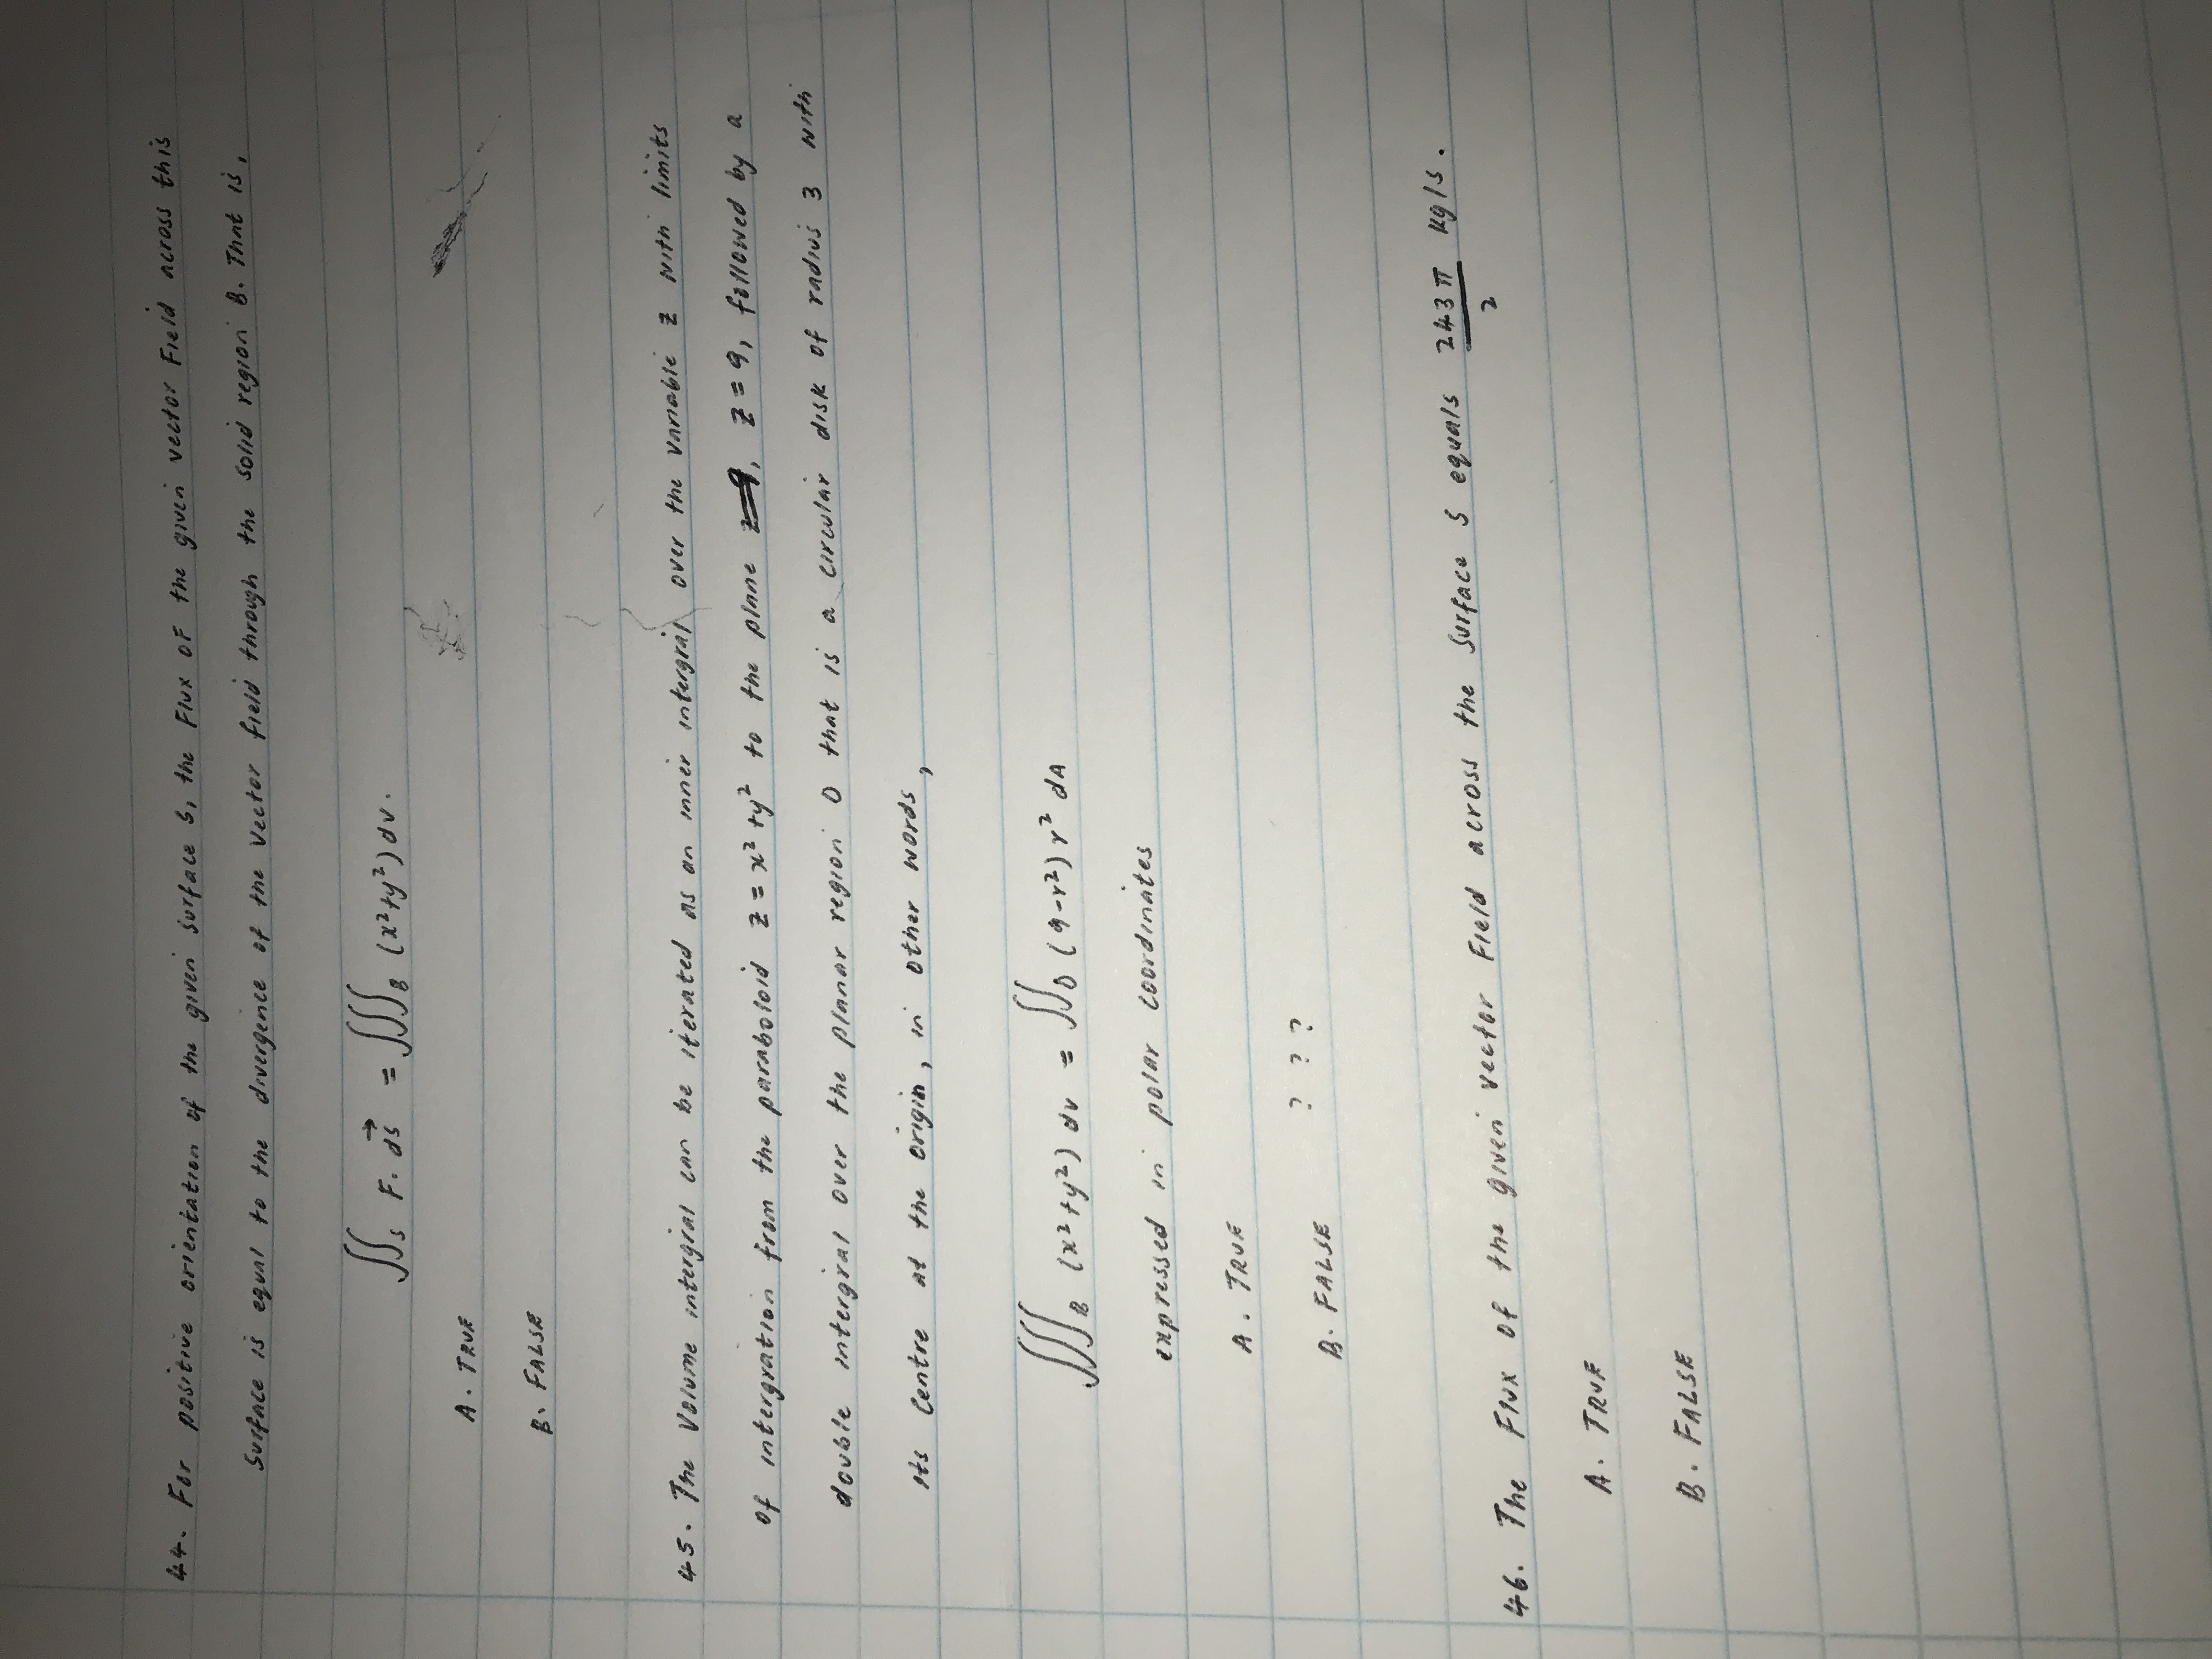 44. For positive orientation of the given surface S, the Flux of the given vector Field across this
surface is equal to the divergence of the vector field through the solid region B. That is,
∬_S F. ds⃗ = ∭_B (x² + y²) dv.
A. TRUE
B. FALSE
45. The Volume intergral can be iterated as an inner intergral over the variable z with limits
of intergration from the paraboloid z = x² + y² to the plane z = 9, z = 9, followed by a
double intergral over the planar region D that is a circular disk of radius 3 with
its centre at the origin, in other words,
∭_B (x² + y²) dv = ∬_D (9 - r²) r² dA
expressed in polar coordinates
A. TRUE
B. FALSE ? ? ?
46. The Flux of the given vector Field across the surface S equals 243π/2 kg/s.
A. TRUE
B. FALSE